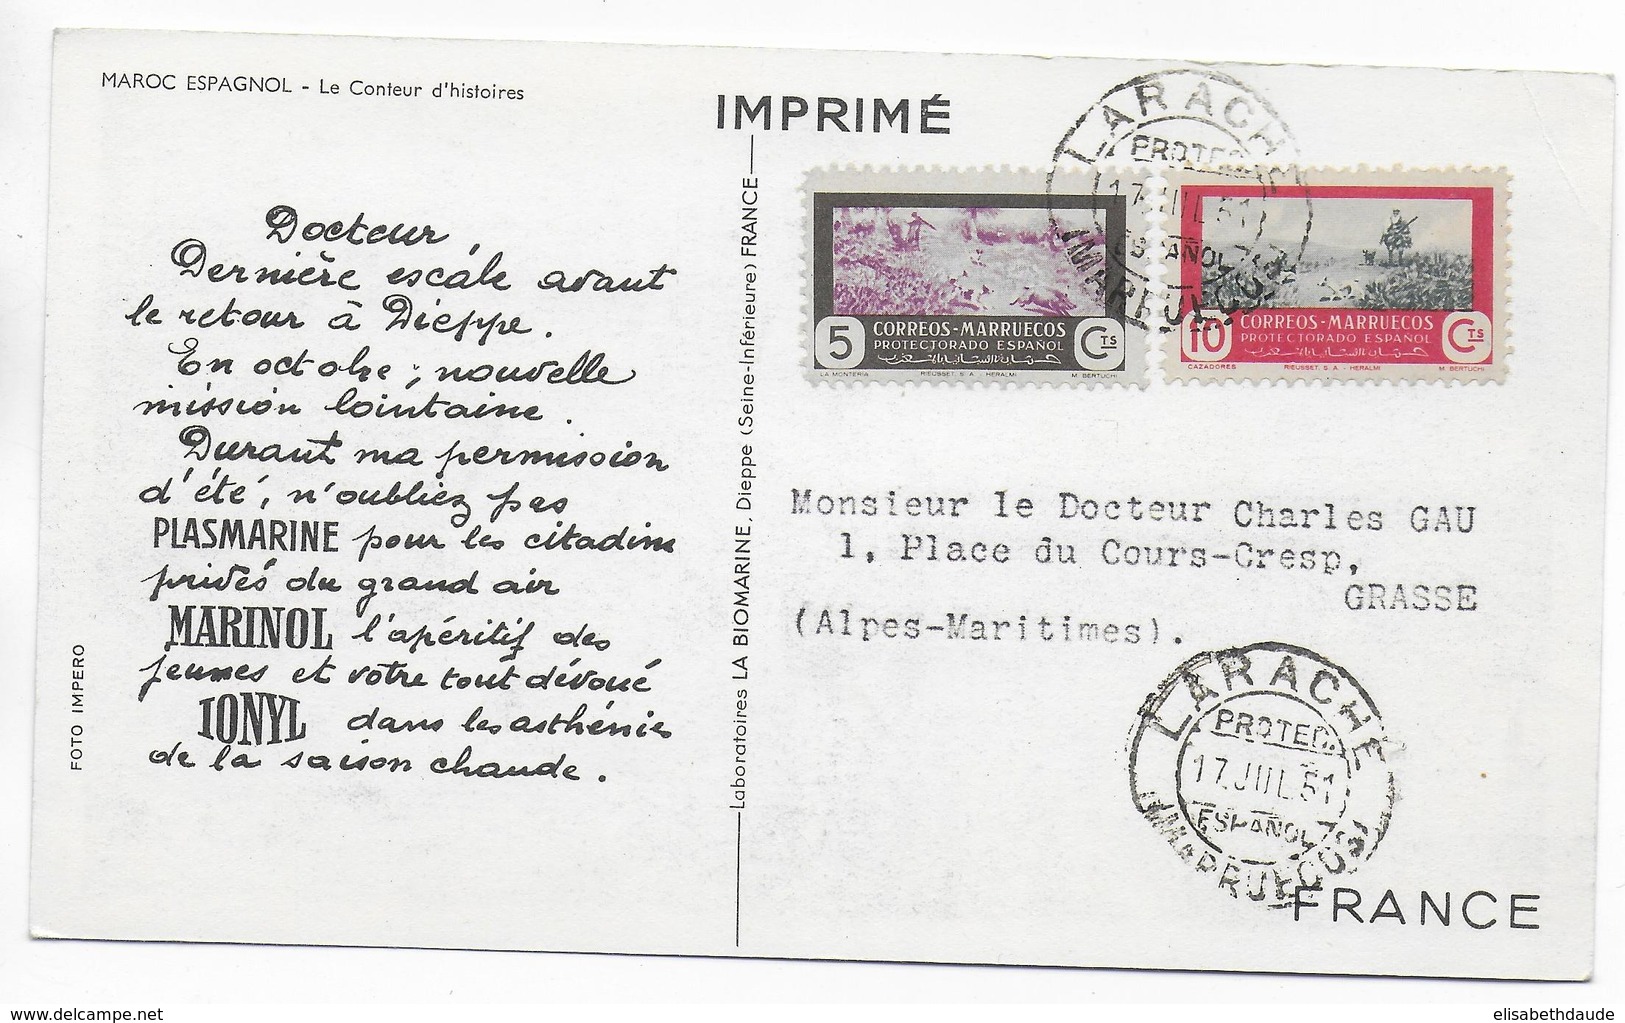 MAROC ESPAGNOL - Le Conteur d'histoires
Docteur,
Dernière escale avant
le retour à Dieppe.
En octobre, nouvelle
mission lointaine.
Durant ma permission
d'été, n'oubliez pas
PLASMARINE pour les citadins
privés du grand air
MARINOL l'apéritif des
jeunes et votre tout dévoué
IONYL dans les asthénies
de la saison chaude.
FOTO IMPERO
Laboratoires LA BIOMARINE, Dieppe (Seine-Inférieure) FRANCE
IMPRIMÉ
LARACHE
PROTEC.
17.JUL.51
ESPAÑOL
(MARRUECOS)
5 CORREOS-MARRUECOS Cts
PROTECTORADO ESPAÑOL
LA MONTERIA RIEUSSET, S. A. - HERALMI M. BERTUCHI
10 CORREOS-MARRUECOS Cts
PROTECTORADO ESPAÑOL
CAZADORES RIEUSSET, S. A. - HERALMI M. BERTUCHI
Monsieur le Docteur Charles GAU
1, Place du Cours-Cresp,
GRASSE
(Alpes-Maritimes).
LARACHE
PROTEC.
17.JUL.51
ESPAÑOL
(MARRUECOS)
FRANCE
www.delcampe.net
elisabethdaude